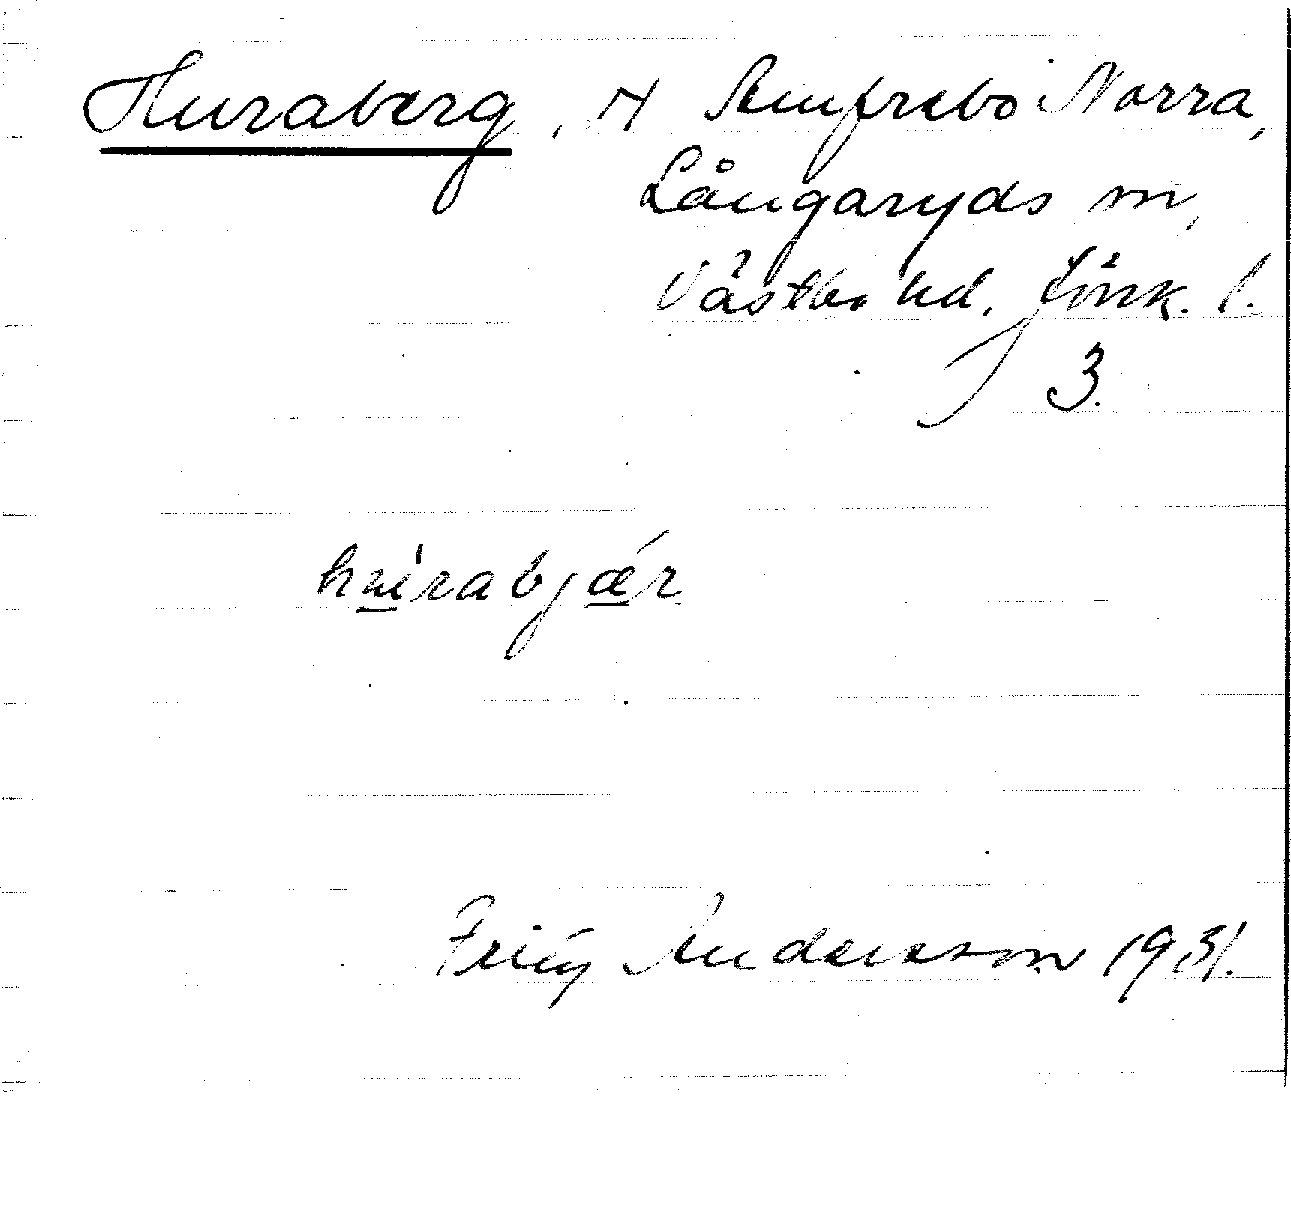 Huraberg, H Amfrebo Norra,
Långaryds sn,
Västbo hd. Jönk. l.
3.
hurabjær
Andersson 1931.